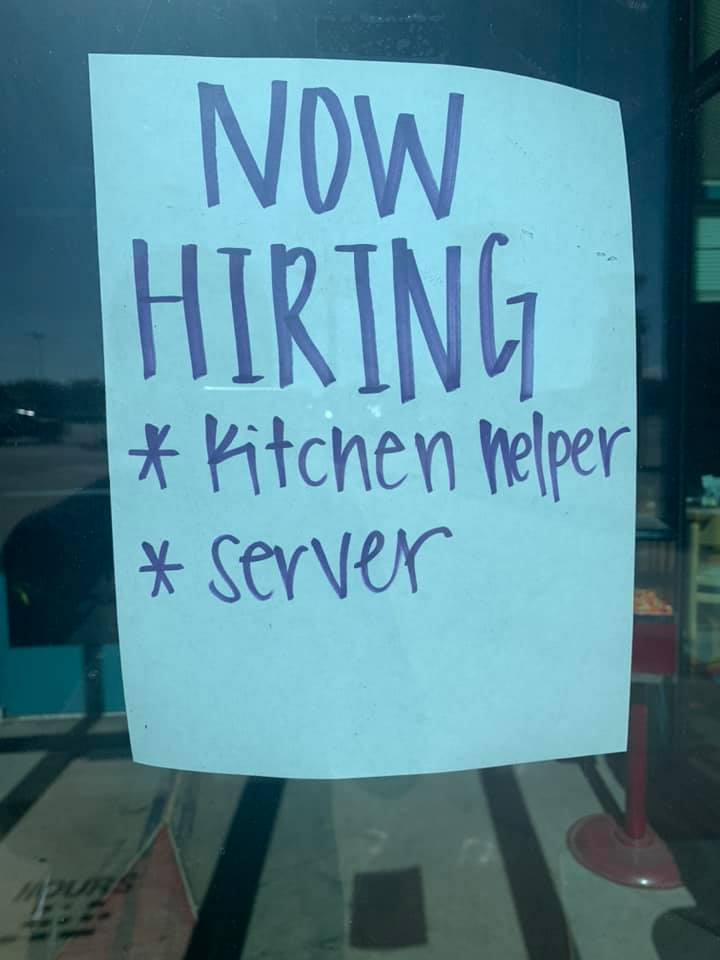 NOW
HIRING
* Kitchen helper
* server
HOURS